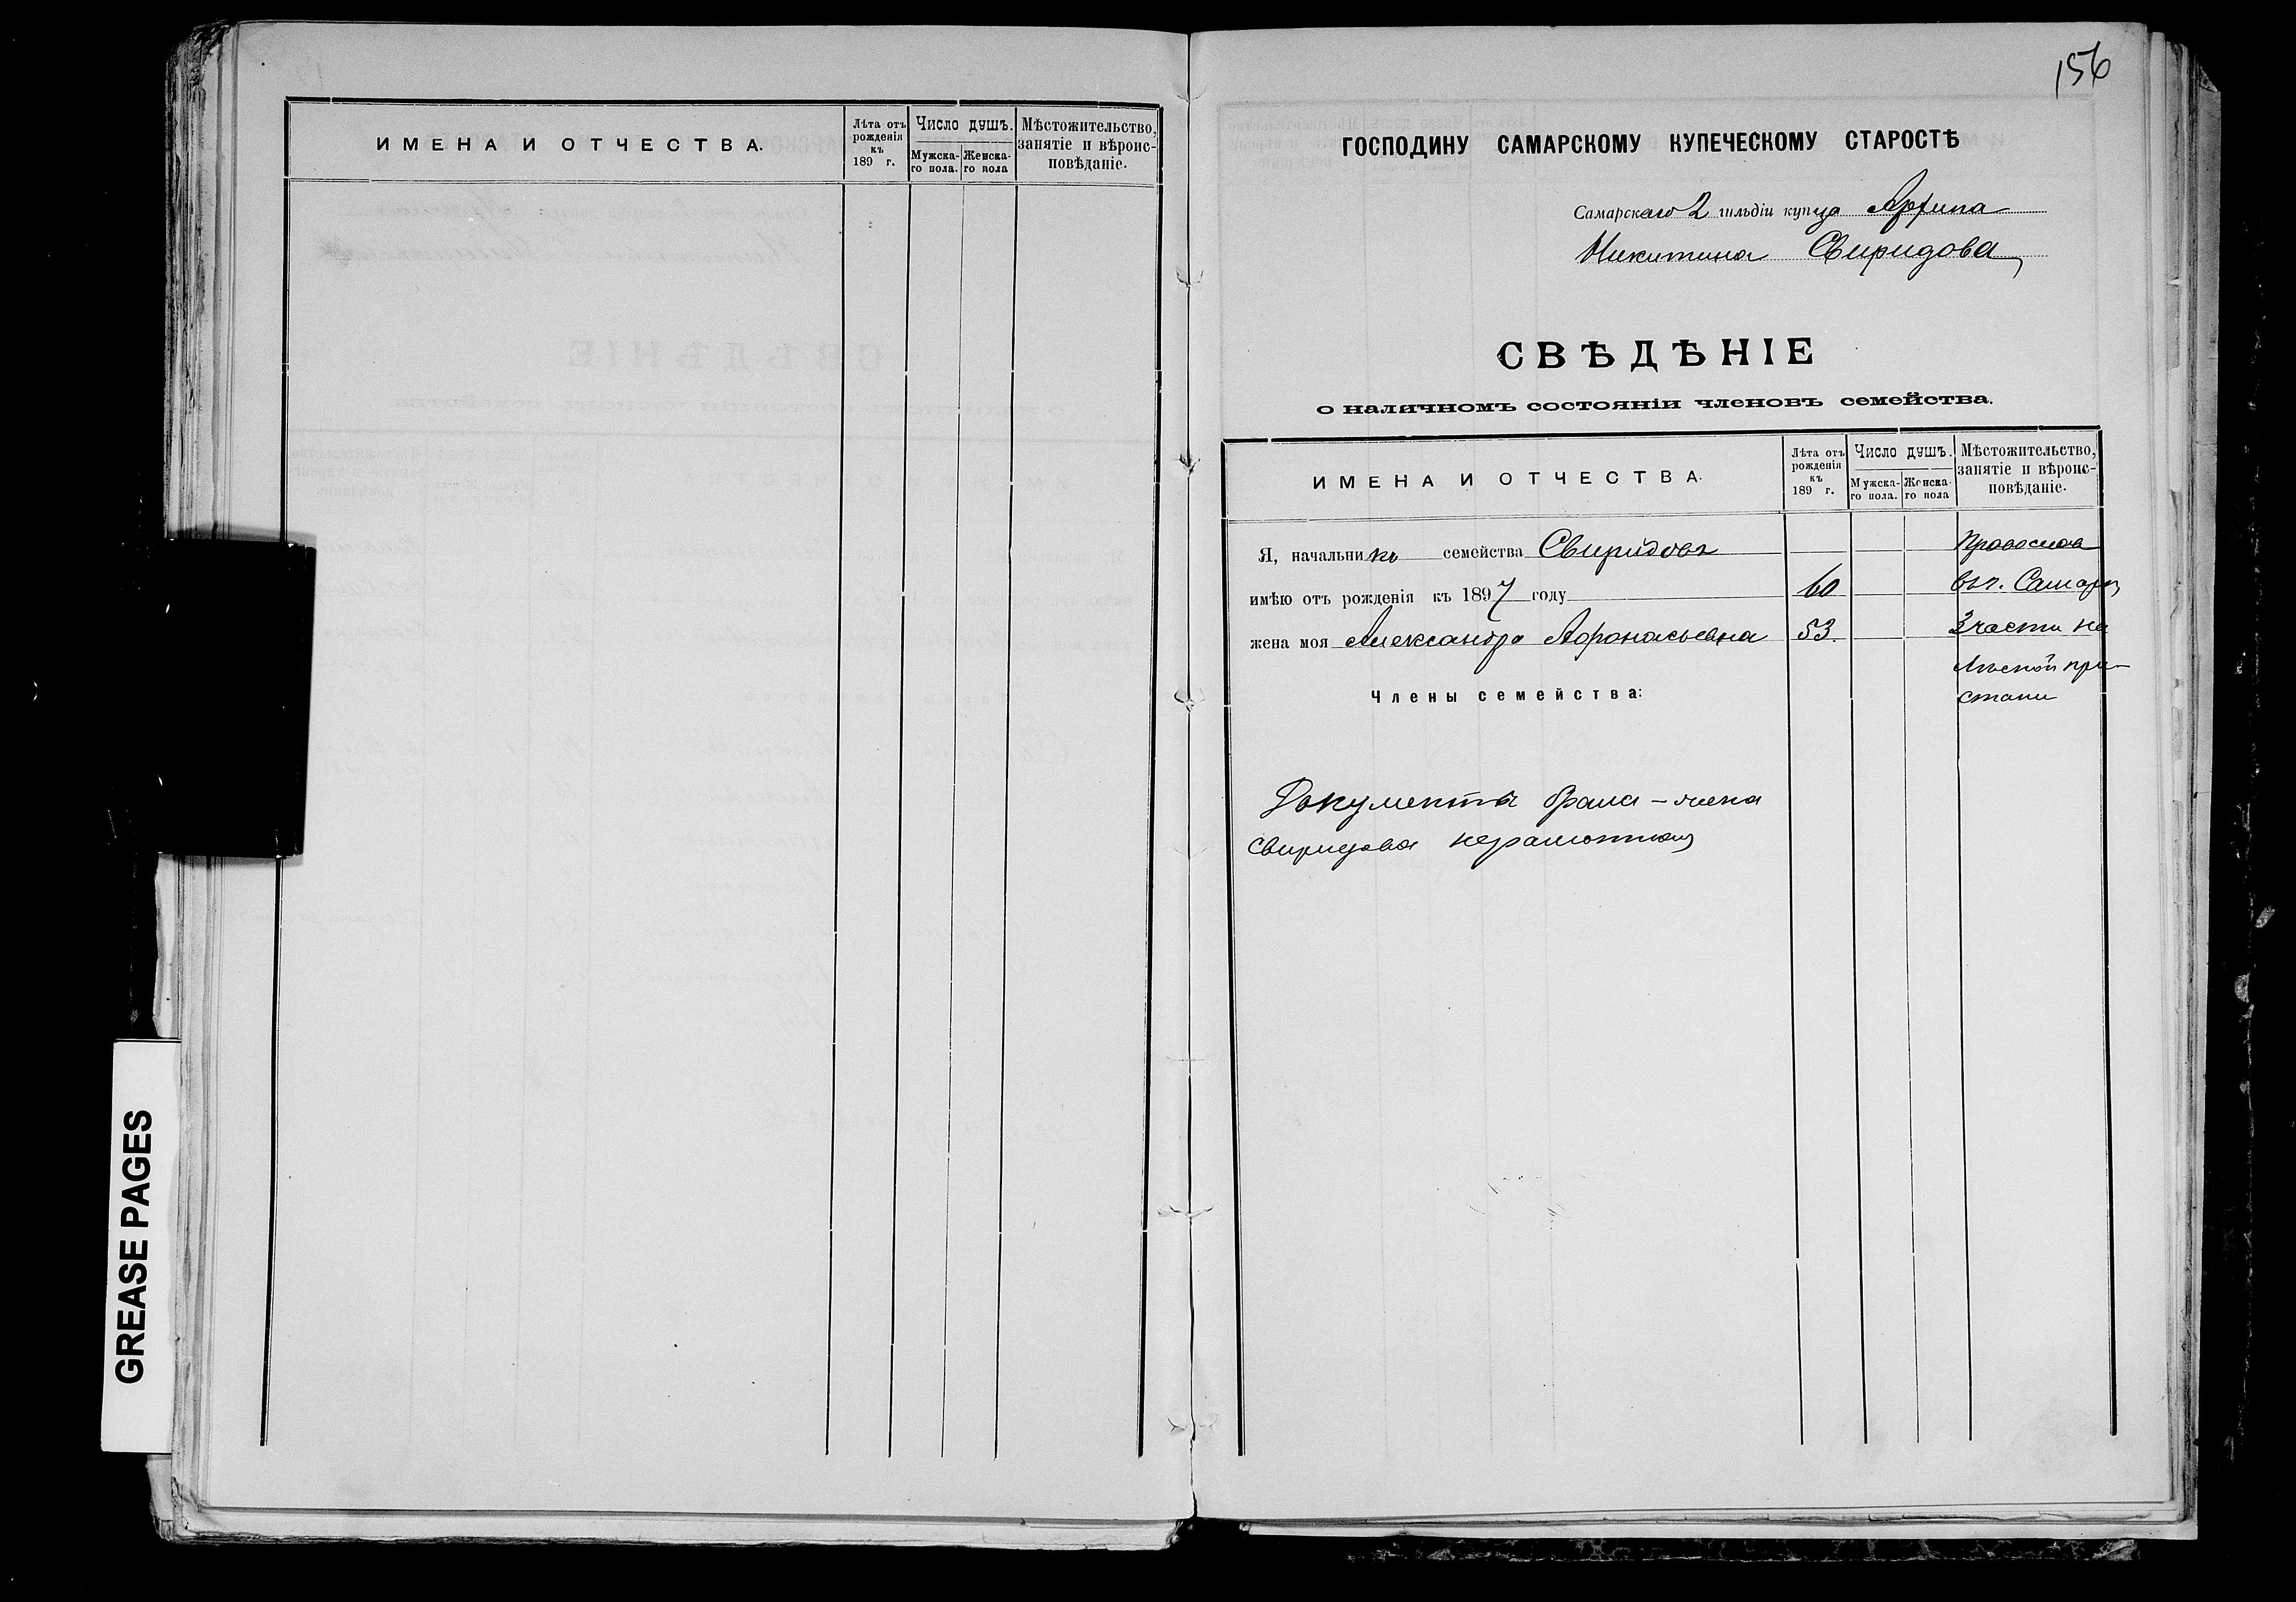 ИМЕНА И ОТЧЕСТВА.
Лѣта отъ рожденія къ 189 г.
Число душъ.
Мужска-го пола.
Женска-го пола
Мѣстожительство, занятіе и вѣроис-повѣданіе.
GREASE PAGES
156
ГОСПОДИНУ САМАРСКОМУ КУПЕЧЕСКОМУ СТАРОСТѢ
Самарскаго 2 гильдіи купца Архипа
Никитина Свиридова
СВѢДѢНІЕ
о наличномъ состояніи членовъ семейства.
ИМЕНА И ОТЧЕСТВА.
Лѣта отъ рожденія къ 189 г.
Число душъ.
Мужска-го пола.
Женска-го пола
Мѣстожительство, занятіе и вѣроис-повѣданіе.
Я, начальникъ семейства Свиридовъ Православ
имѣю отъ рожденія къ 1897 году 60 въ г. Самарѣ
жена моя Александра Афонасьевна 53. 3 части на
Лѣсной при-
Члены семейства: стани
Документъ брала - жена
Свиридова неграмотная